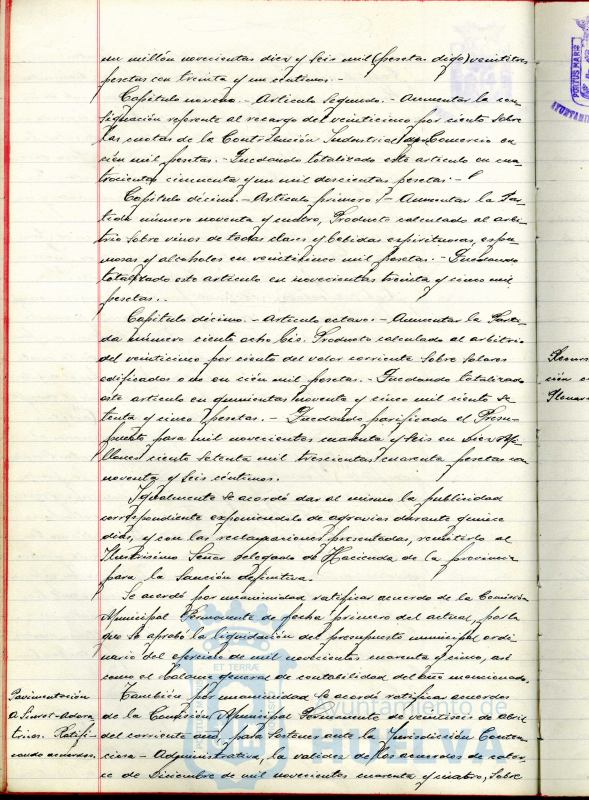 un millón novecientas diez y seis mil (pesetas digo) veintitres
pesetas con treinta y un centimos.-
Capítulo noveno.- Articulo segundo.- Aumentar la con-
signación referente al recargo del veinticinco por ciento sobre
las cuotas de la Contribución Industrial de Comercio en
cién mil pesetas.- Quedando totalizado este articulo en cua-
trocientas cincuenta y un mil doscientas pesetas.-
Capítulo décimo.- Articulo primero.- Aumentar la Par-
tida número noventa y cuatro, Producto calculado al arbi-
trio sobre vinos de todas clases y bebidas espirituosas, espu-
mosas y alcoholes en veinticinco mil pesetas.- Quedando
totalizado este articulo en novecientas treinta y cinco mil
pesetas..
Capítulo décimo.- Articulo octavo.- Aumentar la Parti-
da número ciento ocho bis. Producto calculado al arbitrio
del veinticinco por ciento del valor corriente sobre solares
edificados o no en cién mil pesetas.- Quedando totalizado
este articulo en quinientas noventa y cinco mil ciento se-
tenta y cinco pesetas.- Quedando purificado el Presu-
puesto para mil novecientos cuarenta y seis en diez mi-
llones ciento setenta mil trescientas cuarenta pesetas con
noventa y seis céntimos.
Igualmente se acordó dar al mismo la publicidad
correspondiente exponiendolo de agravios durante quince
dias, y con las reclamaciones presentadas, remitirlo al
Ilustrisimo Señor Delegado de Hacienda de la provincia
para la sanción definitiva.
Se acordó por unanimidad ratificar acuerdo de la Comisión
Municipal Permanente de fecha primero del actual, por la
que se aprobó la liquidación del presupuesto municipal ordi-
nario del ejercicio de mil novecientos cuarenta y cinco, asi
como el balance general de contabilidad del año mencionado.
Pavimentación
A. Siurot-Adora-
trices. Ratifi-
cando acuerdos.
También por unanimidad se acordó ratificar acuerdos
de la Comisión Municipal Permanente de veintiseis de abril
del corriente año, para sostener ante la Jurisdicción Conten-
ciosa-Administrativa, la validez de los acuerdos de cator-
ce de Diciembre de mil novecientos cuarenta y cuatro, sobre
PORTUS MARIS
ET TERRÆ
Ayuntamiento de
HUELVA
PORTUS MARIS
AYUNTAMI
Recurs
ción e
Plenar